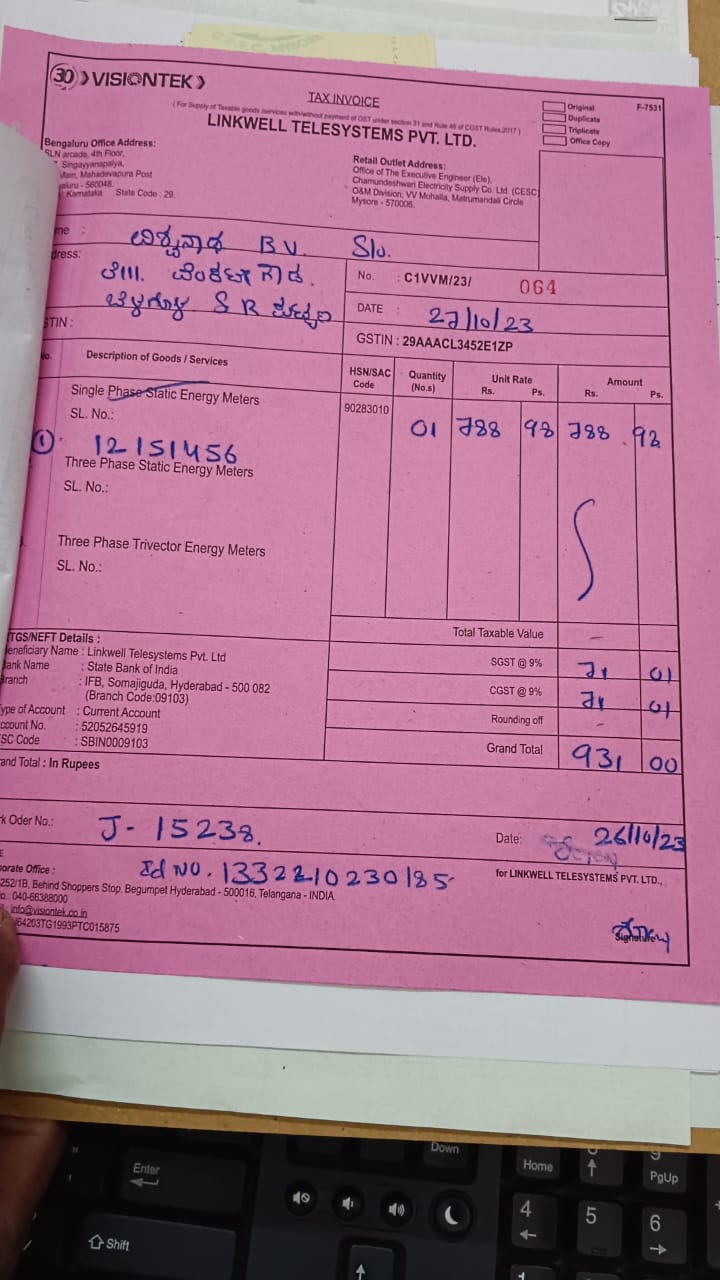 30 VISIONTEK
TAX INVOICE
( For Supply of Taxable goods /services with/without payment of GST under section 31 and Rule 46 of CGST Rules 2017 )
LINKWELL TELESYSTEMS PVT. LTD.
Original
Duplicate
Triplicate
Office Copy
F-7531
Bengaluru Office Address:
SLN arcade, 4th Floor,
Singayyanapalya,
Main, Mahadevapura Post
- 560048.
Karnataka State Code : 29.
Retail Outlet Address:
Office of The Executive Engineer (Ele),
Chamundeshwari Electricity Supply Co. Ltd. (CESC)
O&M Division, VV Mohalla, Matrumandali Circle
Mysore - 570006.
ವಿಶ್ವನಾಥ B.V. S/o.
ವೆಂಕಟೇಗೌಡ.
No. : C1VVM/23/ 064
DATE : 27/10/23
GSTIN : 29AAACL3452E1ZP
Description of Goods / Services
HSN/SAC Code
Quantity (No.s)
Unit Rate Rs. Ps.
Amount Rs. Ps.
Single Phase Static Energy Meters
90283010 01 788 98 788 98
SL. No.:
1 12151456
Three Phase Static Energy Meters
SL. No.:
Three Phase Trivector Energy Meters
SL. No.:
Total Taxable Value -
SGST @ 9% 71 01
CGST @ 9% 71 01
Rounding off -
Grand Total 931 00
TGS/NEFT Details :
eneficiary Name : Linkwell Telesystems Pvt. Ltd
ank Name : State Bank of India
ranch : IFB, Somajiguda, Hyderabad - 500 082
(Branch Code:09103)
ype of Account : Current Account
ccount No. : 52052645919
SC Code : SBIN0009103
and Total : In Rupees
rk Oder No.: J- 15238.
Date: 26/10/23
Id NO. 1332210230185
for LINKWELL TELESYSTEMS PVT. LTD.,
porate Office :
252/1B, Behind Shoppers Stop, Begumpet Hyderabad - 500016, Telangana - INDIA.
o.: 040-66388000
info@visiontek.co.in
64203TG1993PTC015875
Signatory
Enter
Shift
Down
Home
PgUp
4
5
6